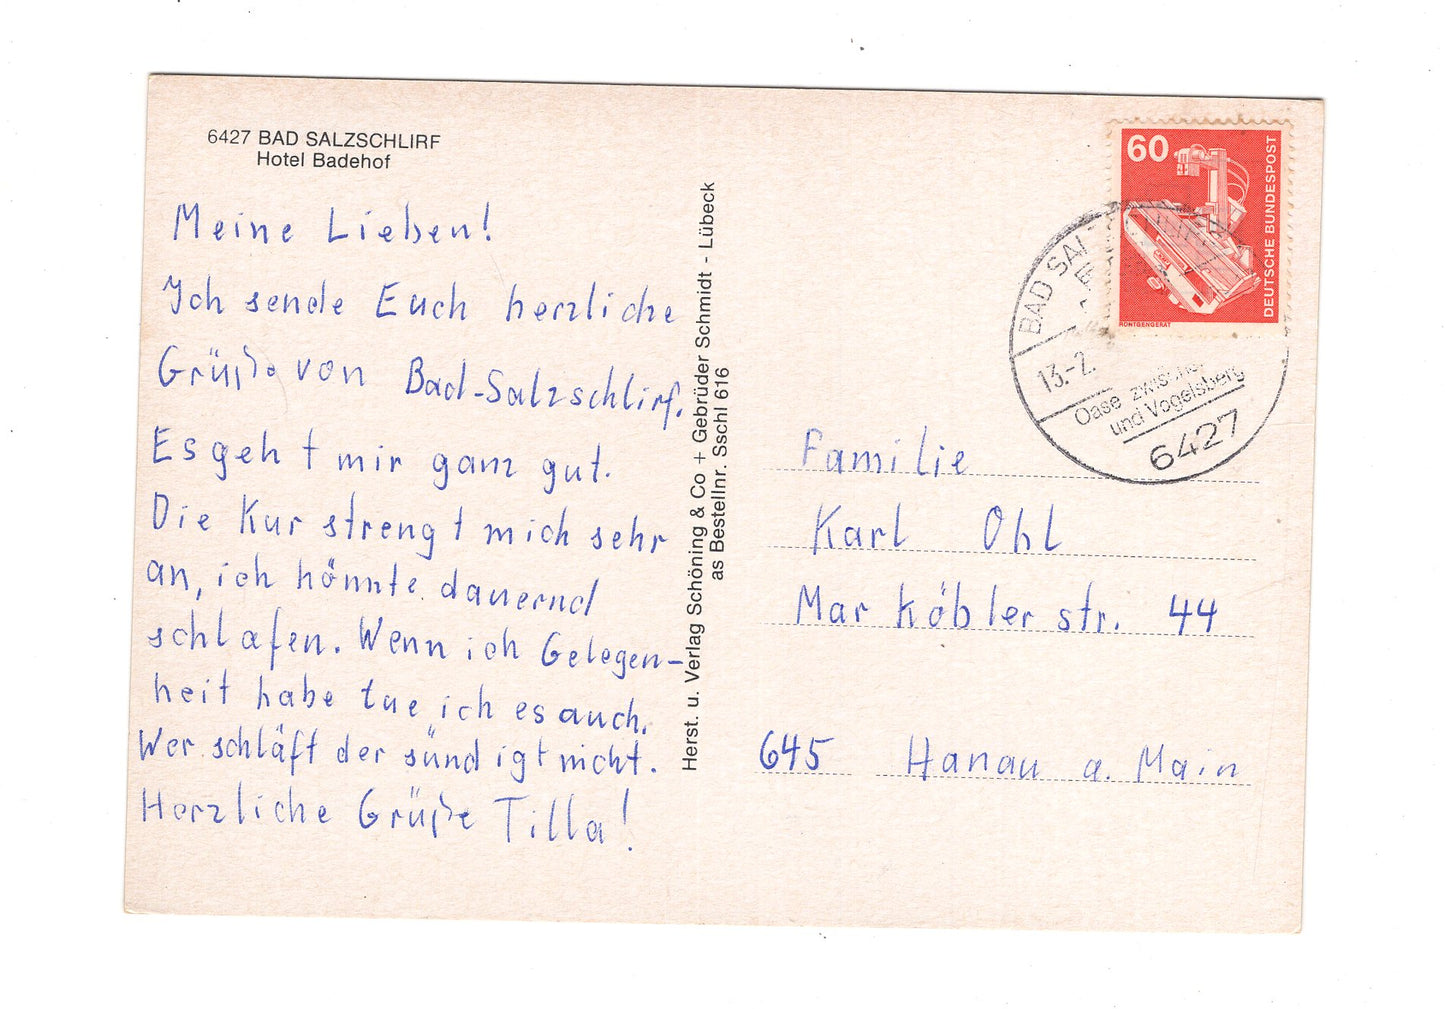 6427 BAD SALZSCHLIRF
Hotel Badehof
Meine Lieben!
Ich sende Euch herzliche
Grüße von Bad-Salzschlirf.
Es geht mir ganz gut.
Die Kur strengt mich sehr
an, ich könnte dauernd
schlafen. Wenn ich Gelegen-
heit habe tue ich es auch.
Wer schläft der sündigt nicht.
Herzliche Grüße Tilla!
Herst. u. Verlag Schöning & Co + Gebrüder Schmidt - Lübeck
as Bestellnr. Sschl 616
60
DEUTSCHE BUNDESPOST
RÖNTGENGERÄT
BAD SAL
13.-2.
Oase zwische
und Vogelsberg
6427
Familie
Karl Ohl
Marköblerstr. 44
645 Hanau a. Main